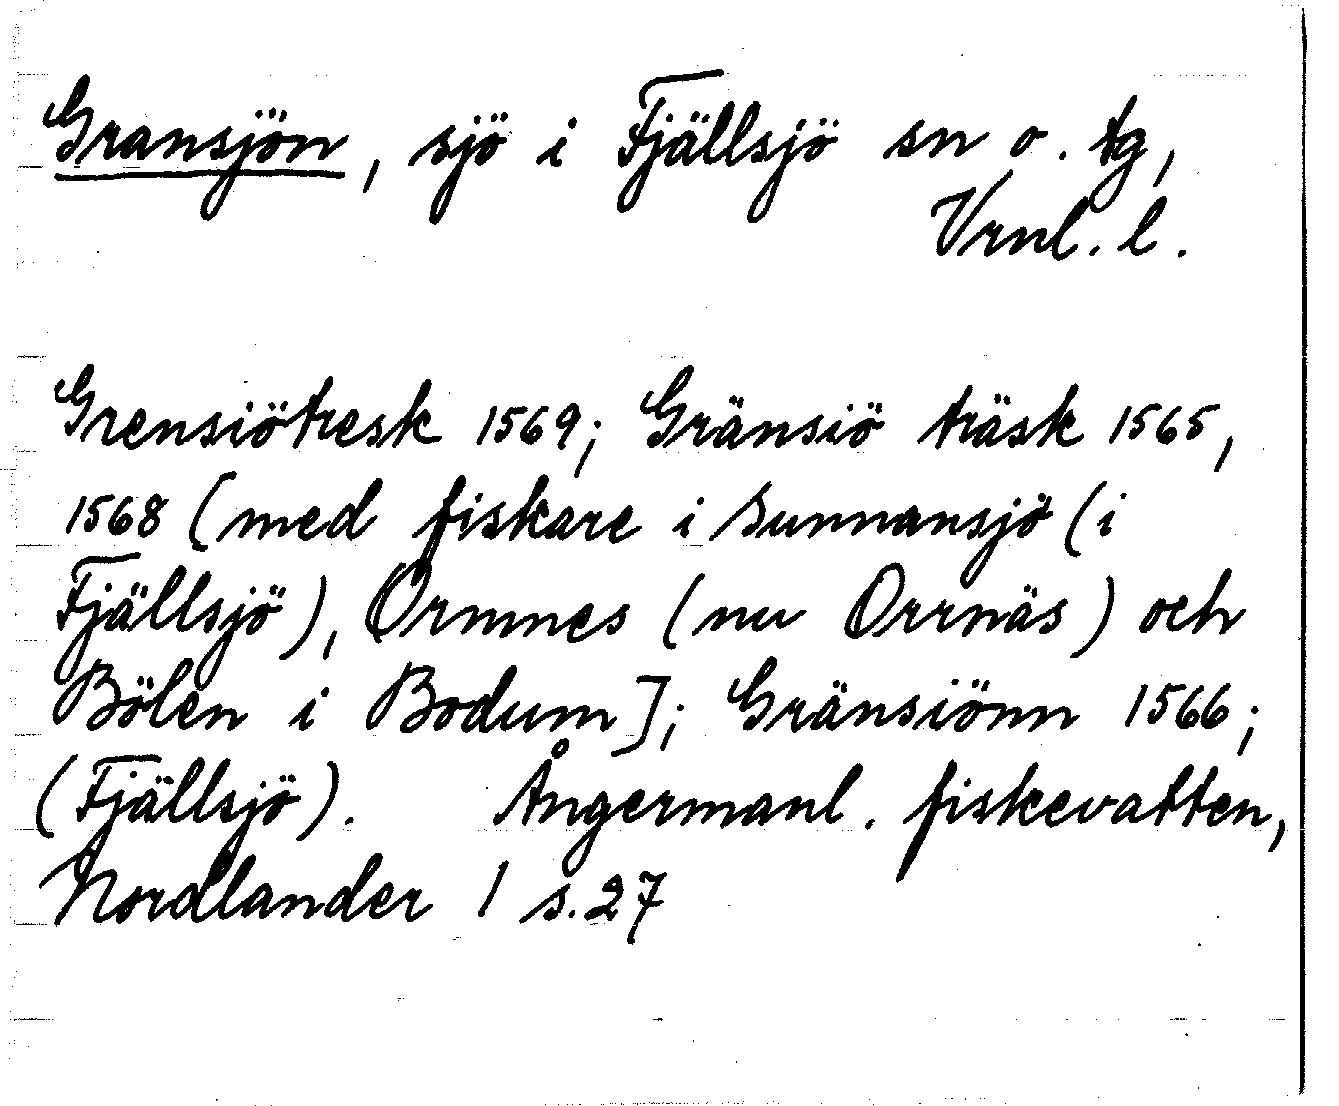 Gransjön, sjö i Fjällsjö sn o. tg,
Vrnl. l.
Grensiötresk 1569; Gränsiö träsk 1565,
1568 [med fiskare i Sunnansjö (i
Fjällsjö), Ormnes (nu Orrnäs) och
Bölen i Bodum]; Gränsiönn 1566;
(Fjällsjö). Ångermanl. fiskevatten,
Nordlander 1 s. 27